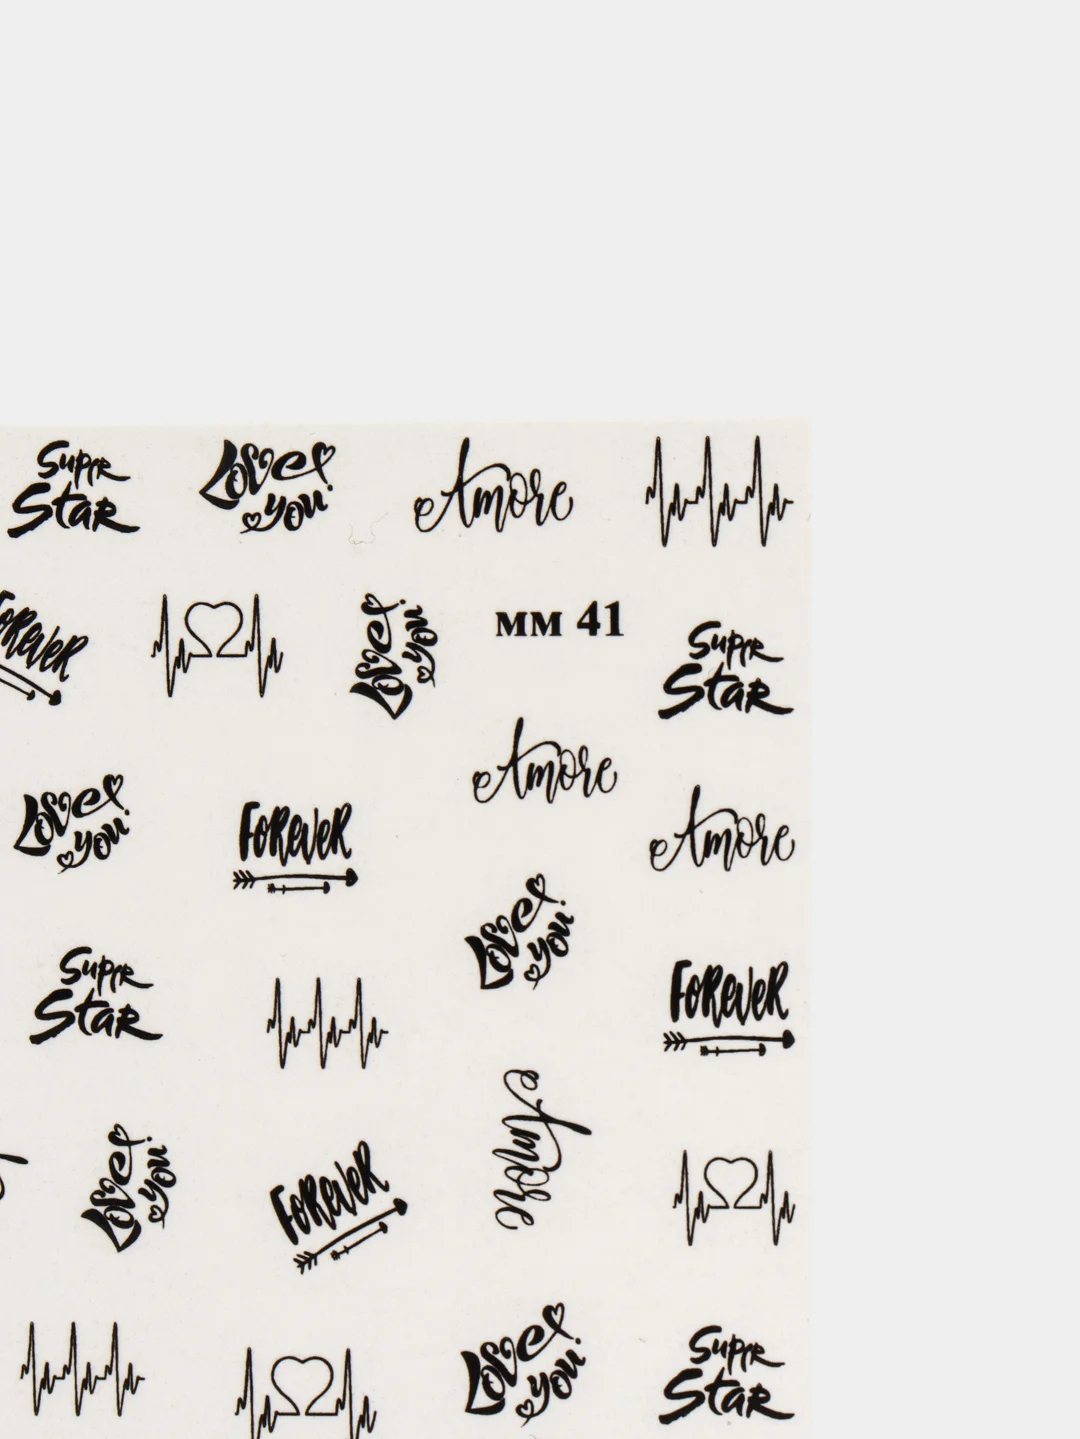 Super
Star
Love
you
Amore
Forever
Love
you
мм 41
Super
Star
Amore
Love
you
Forever
Amore
Love
you
Super
Star
Forever
Amore
Love
you
Forever
Love
you
Super
Star